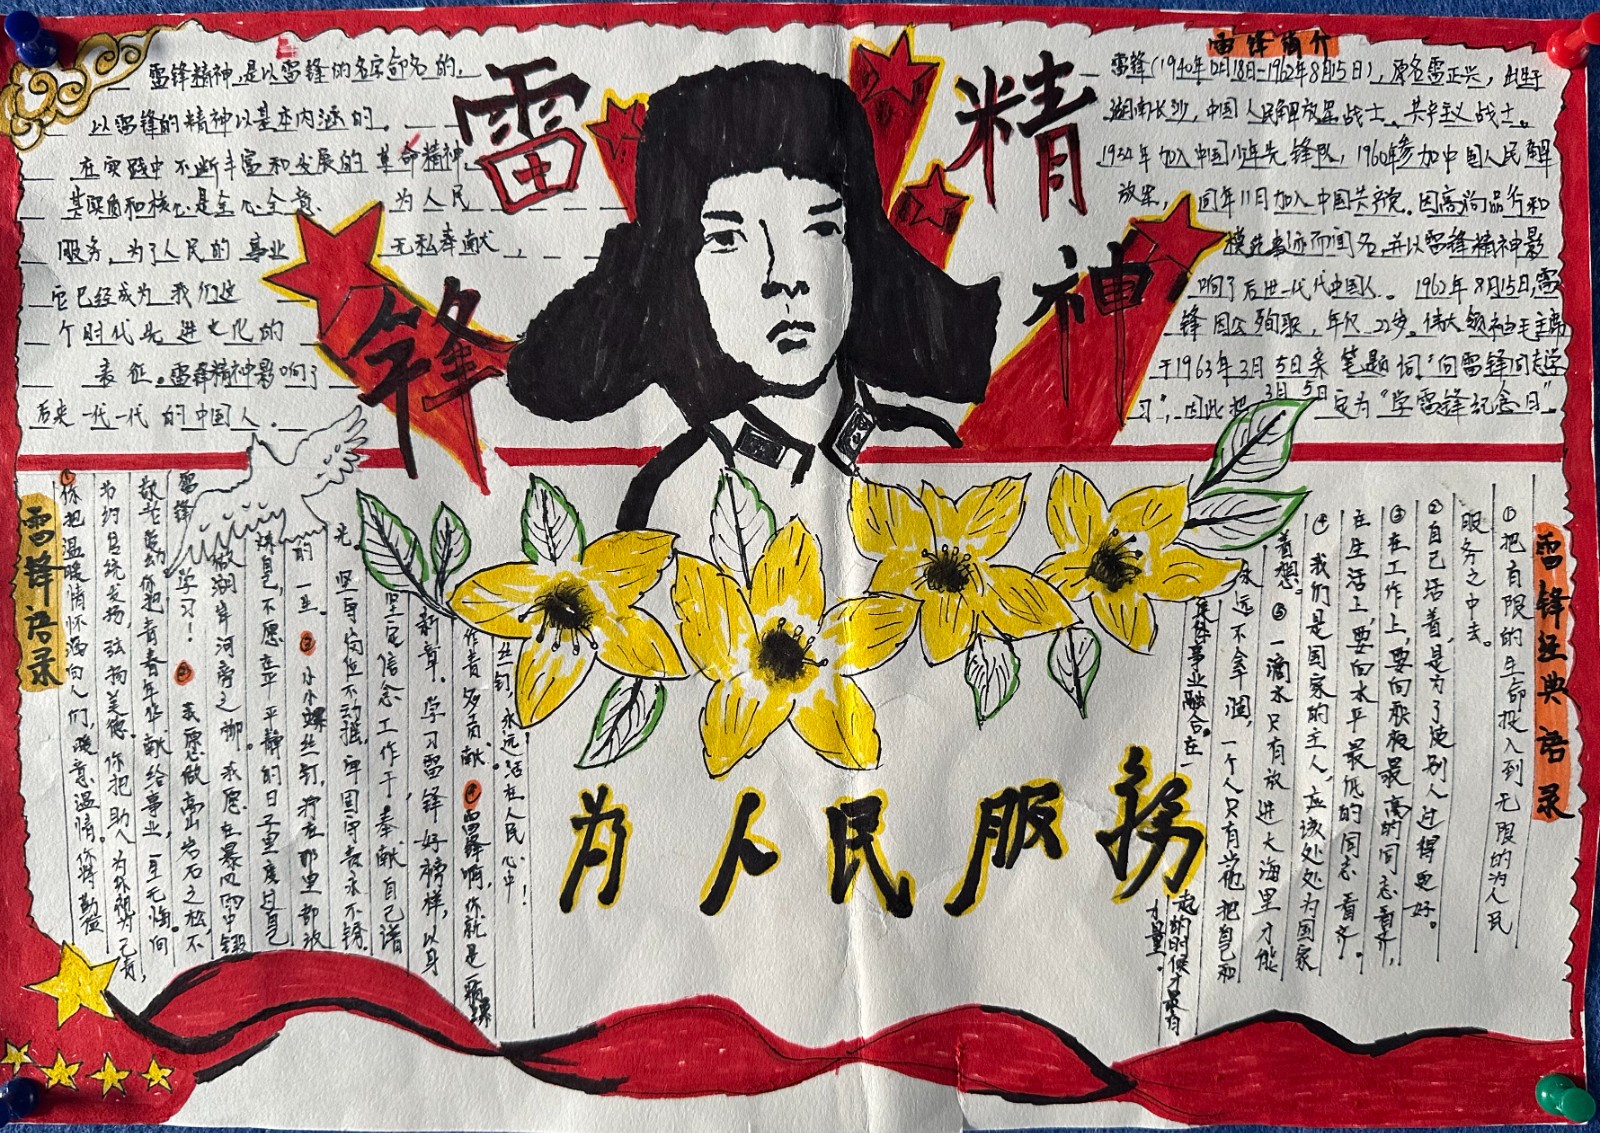 雷锋精神
为人民服务
雷锋精神,是以雷锋的名字命名的,
以雷锋的精神以基本内涵的、
在实践中不断丰富和发展的革命精神,
其实质和核心是全心全意 为人民
服务,为了人民的事业 无私奉献,
它已经成为我们这
个时代先进文化的
表征。雷锋精神影响了
后来一代一代的中国人。
雷锋简介
雷锋(1940年12月18日-1962年8月15日),原名雷正兴,出生于
湖南长沙,中国人民解放军战士、共产主义战士。
1954年加入中国少年先锋队,1960年参加中国人民解
放军, 同年11月加入中国共产党.因高尚品行和
模范事迹而闻名,并以雷锋精神影
响了后进一代代中国人。 1962年8月15日,雷
锋因公殉职,年仅22岁。伟大领袖毛主席
于1963年3月5日亲笔题词"向雷锋同志学
习",因此把3月5日定为"学雷锋纪念日"
雷锋经典语录
①把有限的生命投入到无限的为人民
服务之中去。
②自己活着,是为了使别人过得更好。
③在工作上,要向积极最高的同志看齐,
在生活上,要向水平最低的同志看齐。
④我们是国家的主人,应该处处为国家
着想。⑤一滴水只有放进大海里才能
永远不会涸,一个人只有当他把自己和
集体事业融合在一
起的时候才最有
力量。
雷锋语录
①你把温暖情怀洒向人们,暖意温情。你将勤俭
为约自统发扬,弘扬美德。你把助人为乐视为己责,
敬老爱幼你把青春年华献给事业,一生无悔。向
雷锋学习! ②我愿做高山岩石之松,不
做湖岸河旁之柳。我愿在暴风雨中锻
炼自己,不愿在平平静的日子里度过自己
的一生。③小小螺丝钉,拧在那里都放
光。坚守岗位不动摇,牢固守责永不锈。
坚定信念工作于,奉献自己谱
新章。学习雷锋好榜样,以身
作责多贡献。④雷锋啊,你就是一颗螺
丝钉,永远活在人民心中!